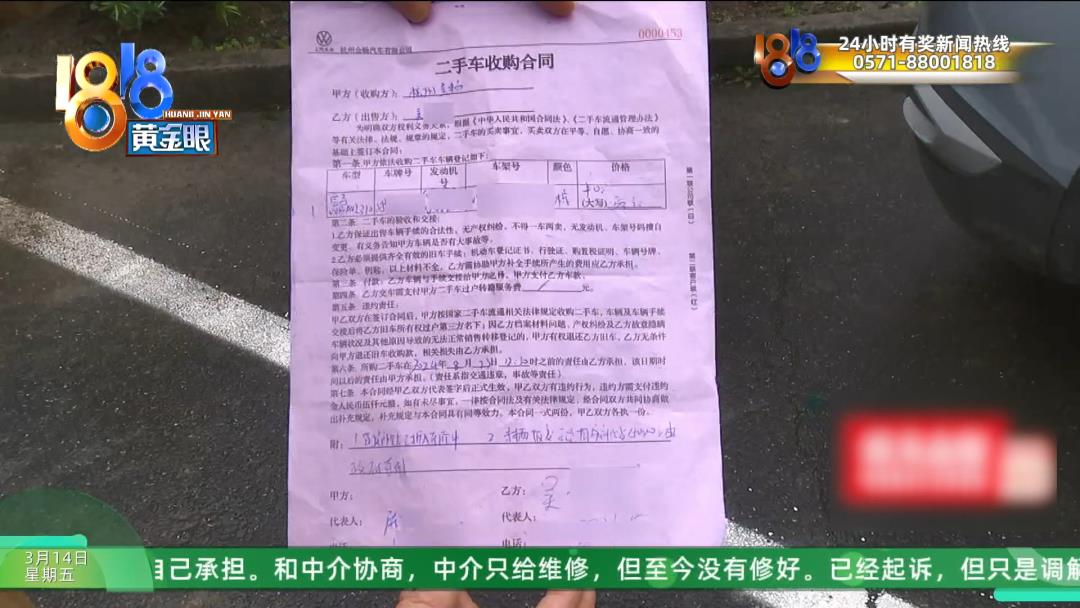 1818
HUANG JIN YAN
黄金眼
1818
24小时有奖新闻热线
0571-88001818
杭州金畅汽车有限公司
0000453
二手车收购合同
甲方（收购方）：
乙方（出售方）：
为明确双方权利义务关系，根据《中华人民共和国合同法》、《二手车流通管理办法》
等有关法律、法规、规章的规定，二手车的买卖事宜，买卖双方在平等、自愿、协商一致的
基础上签订本合同：
第一条 甲方依法收购二手车车辆登记如下：
车型 车牌号 发动机号 车架号 颜色 价格
(大写)
第二条 二手车的验收和交接：
1.乙方保证出售车辆手续的合法性，无产权纠纷，不得一车两卖，无发动机、车架号码擅自
变更、有义务告知甲方车辆是否有大事故等。
2.乙方必须提供齐全有效的旧车手续：机动车登记证书、行驶证、购置税证明、车辆号牌、
保险单、钥匙，以上材料不全，乙方需协助甲方补全手续所产生的费用应乙方承担。
第三条 付款：乙方车辆与手续交接给甲方之后，甲方支付乙方车款。
第四条 乙方交车需支付甲方二手车过户转籍服务费 元。
第五条 违约责任：
甲乙双方在签订合同后，甲方按国家二手车流通相关法律规定收购二手车，车辆及车辆手续
交接后将乙方旧车所有权过户第三方名下；因乙方档案材料问题、产权纠纷及乙方故意隐瞒
车辆状况及其他原因导致的无法正常销售转移登记的，甲方有权退还乙方旧车，乙方无条件
向甲方退还旧车收购款，相关损失由乙方承担。
第六条 所购二手车在2024年8月23日 时之前的责任由乙方承担，该日期时
间以后的责任由甲方承担。（责任系指交通违章，事故等责任）
第七条 本合同经甲乙双方代表签字后正式生效，甲乙双方有违约行为，违约方需支付违约
金人民币伍仟元整，如有未尽事宜，一律按合同法及有关法律规定，经合同双方共同协商做
出补充规定，补充规定与本合同具有同等效力。本合同一式两份，甲乙双方各执一份。
附：
甲方： 乙方：
代表人： 代表人：
电话：
3月14日
星期五
自己承担。和中介协商，中介只给维修，但至今没有修好。已经起诉，但只是调解